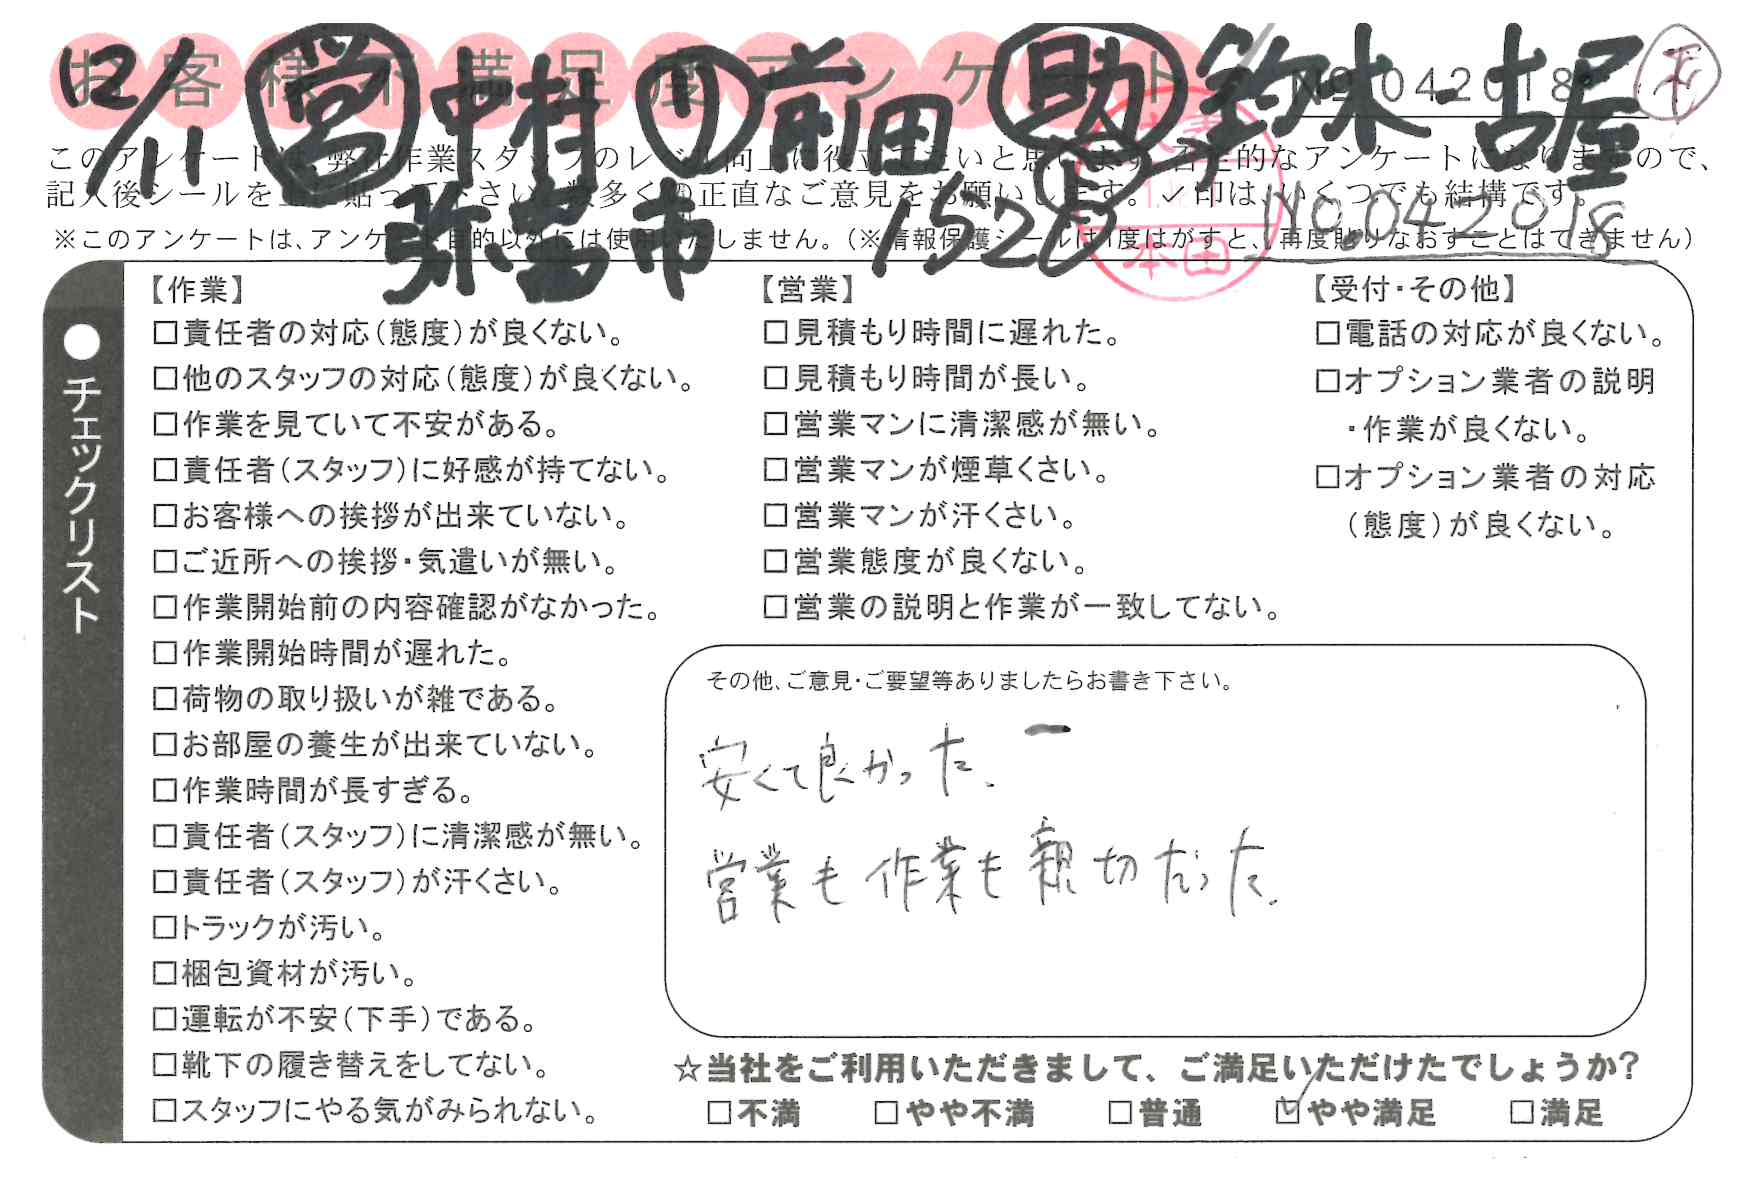 お客様不満足度アンケート No 042018
12/11 営 中村 リ 前田 助 鈴木・古屋
このアンケートは、弊社作業スタッフのレベル向上に役立てたいと思います。
的なアンケートになりますので、
記入後シールを上に貼って下さい。数多くの正直なご意見をお願いします。✓印は、いくつでも結構です。
弥富市 1520 No.042018
※このアンケートは、アンケート目的以外には使用いたしません。（※情報保護シールは1度はがすと、再度貼りなおすことはできません）
本田
●チェックリスト
【作業】
□責任者の対応（態度）が良くない。
□他のスタッフの対応（態度）が良くない。
□作業を見ていて不安がある。
□責任者（スタッフ）に好感が持てない。
□お客様への挨拶が出来ていない。
□ご近所への挨拶・気遣いが無い。
□作業開始前の内容確認がなかった。
□作業開始時間が遅れた。
□荷物の取り扱いが雑である。
□お部屋の養生が出来ていない。
□作業時間が長すぎる。
□責任者（スタッフ）に清潔感が無い。
□責任者（スタッフ）が汗くさい。
□トラックが汚い。
□梱包資材が汚い。
□運転が不安（下手）である。
□靴下の履き替えをしてない。
□スタッフにやる気がみられない。
【営業】
□見積もり時間に遅れた。
□見積もり時間が長い。
□営業マンに清潔感が無い。
□営業マンが煙草くさい。
□営業マンが汗くさい。
□営業態度が良くない。
□営業の説明と作業が一致してない。
【受付・その他】
□電話の対応が良くない。
□オプション業者の説明
・作業が良くない。
□オプション業者の対応
（態度）が良くない。
その他、ご意見・ご要望等ありましたらお書き下さい。
安くて良かった、
営業も作業も親切だった。
☆当社をご利用いただきまして、ご満足いただけたでしょうか?
□不満 □やや不満 □普通 ☑やや満足 □満足